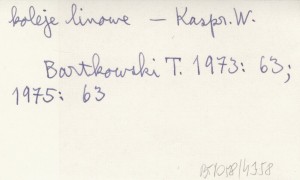 koleje linowe – Kaspr. W.
Bartkowski T. 1973: 63;
1975: 63